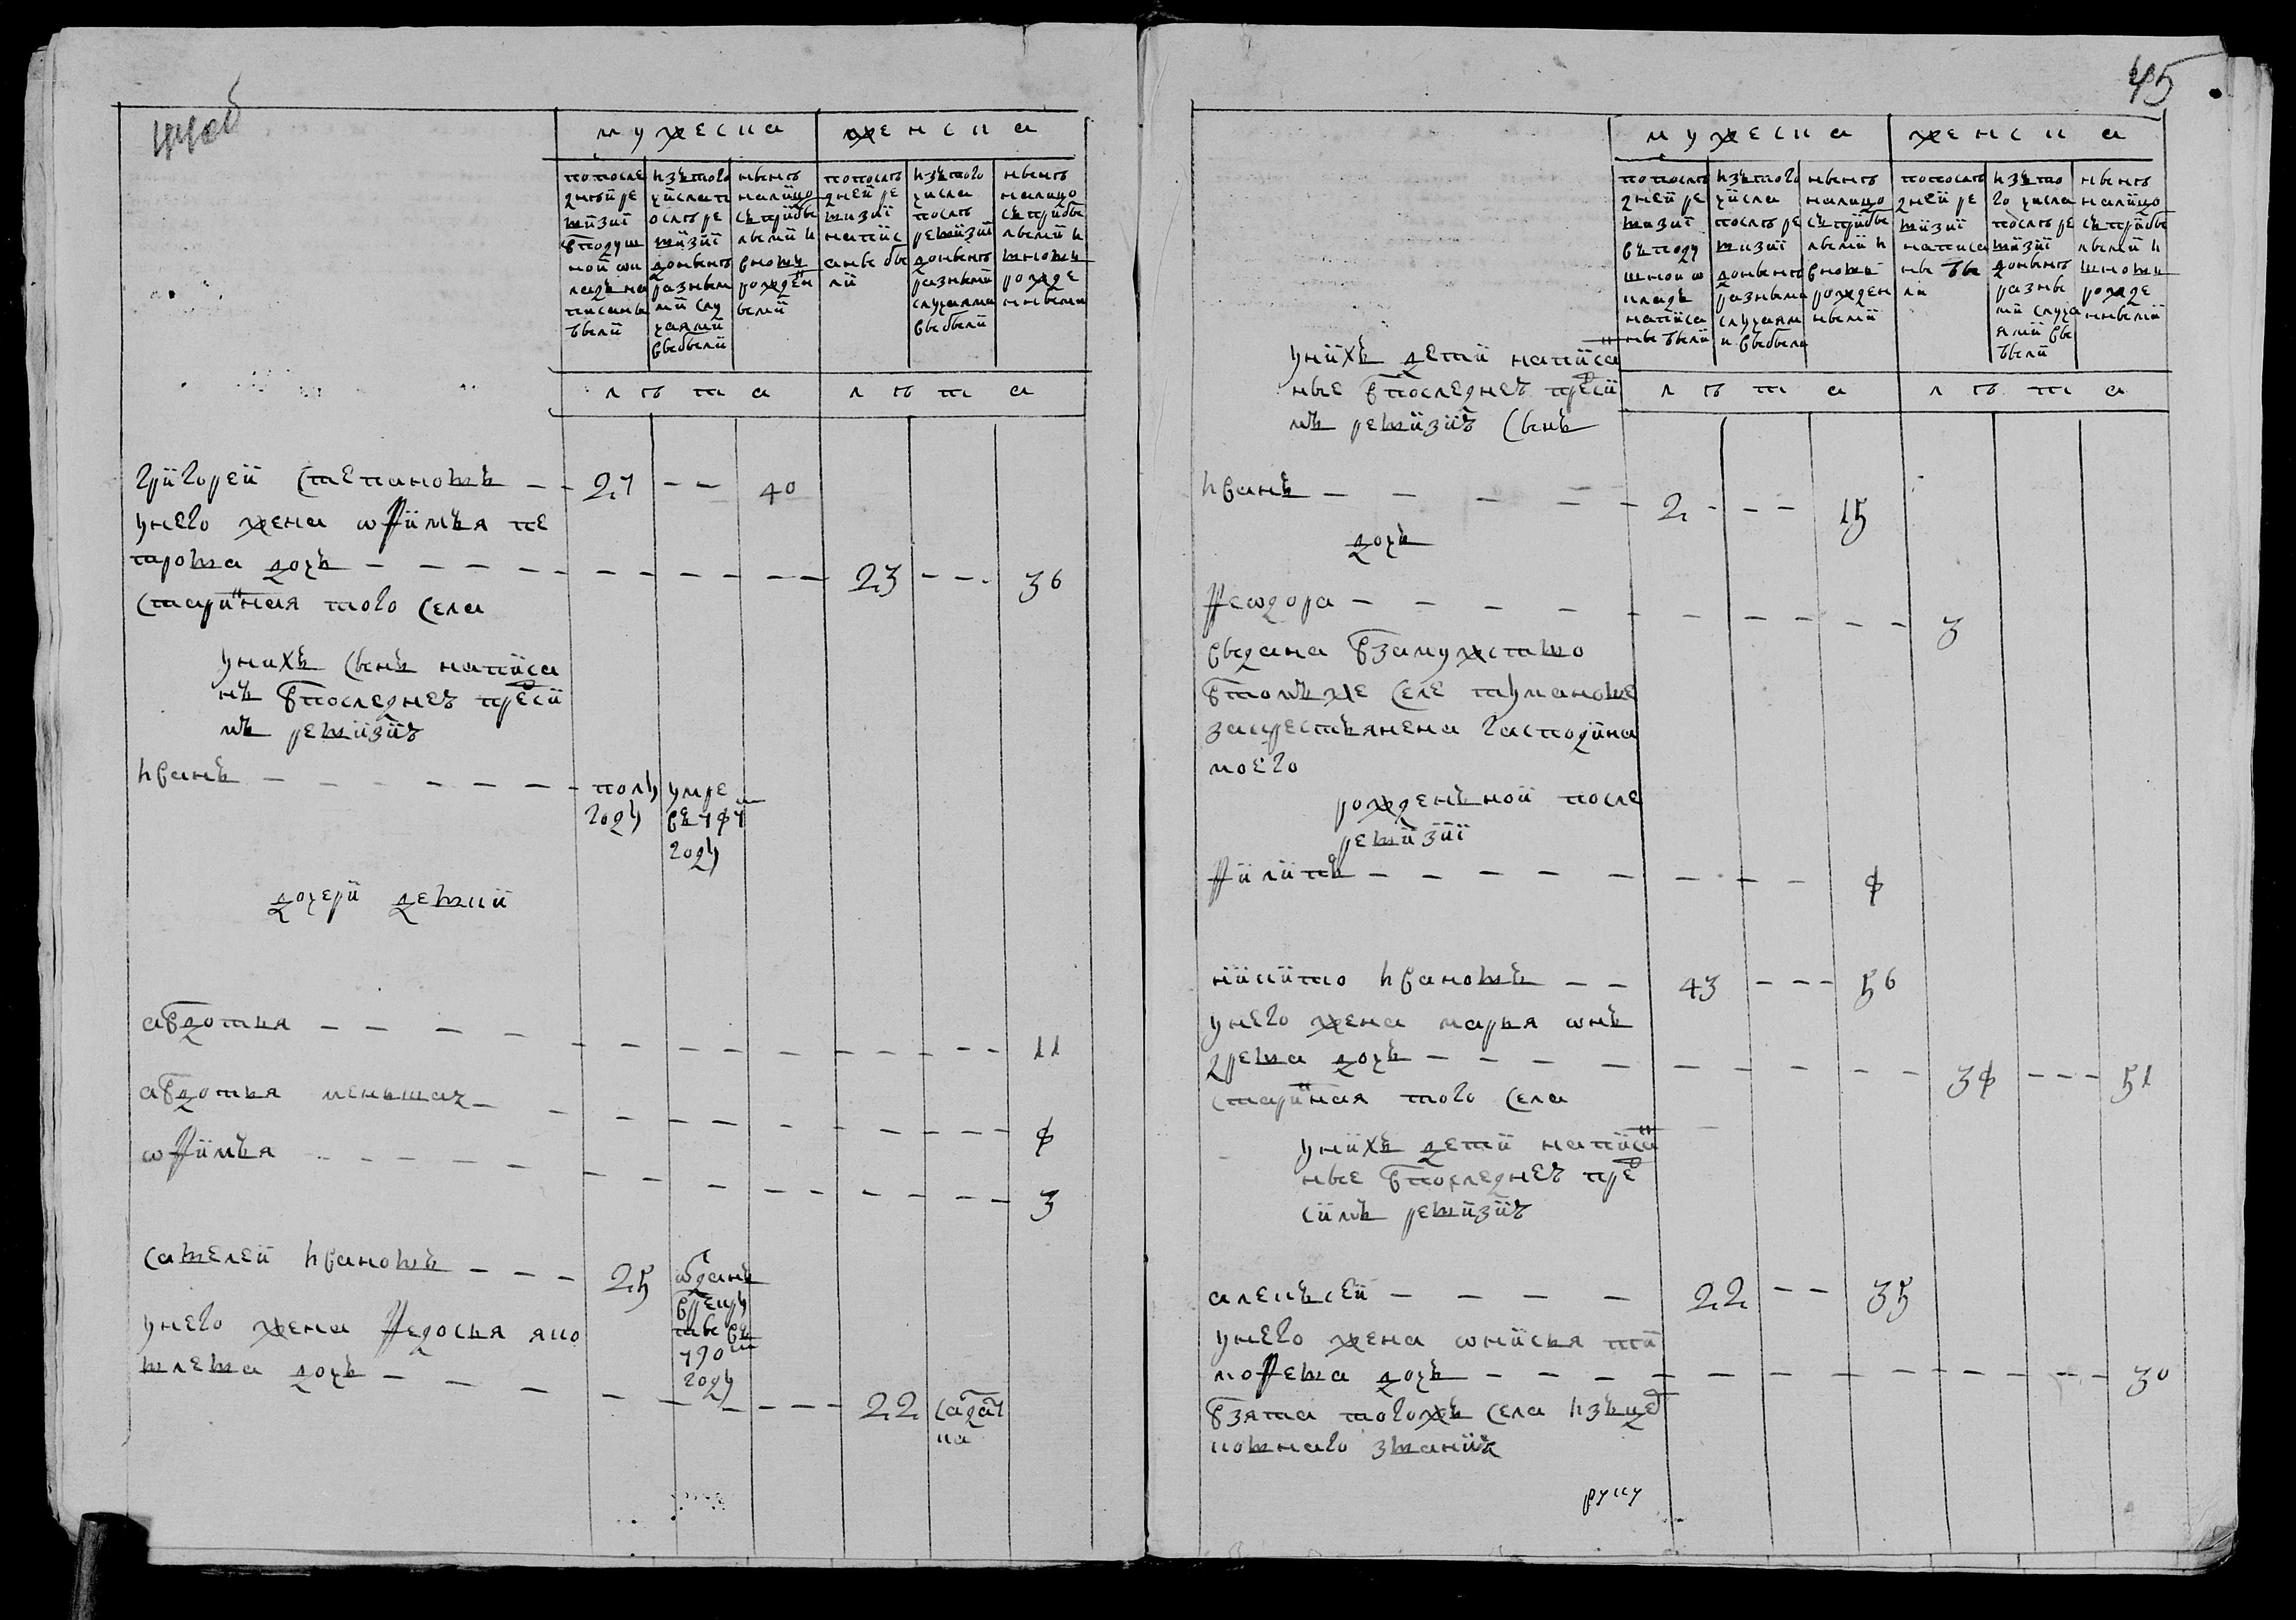 мужеска
женска
по после
дней ре
визиї
в подуш
ной ок
ладъ на
писаны
были
изъ того
числа п
ослѣ ре
визиї
до нынѣ
разным
и слу
чаями
выбыли
нынѣ
налицо
съ прибы
лыми и
вновь
рожден
ными
по послѣ
дней ре
визиї
напис
аны бы
ли
изъ того
числа
послѣ
ревизиї
до нынѣ
разными
случаями
выбыли
нынѣ
налицо
съ прибы
лыми и
вновь
рожде
нными
лѣта
лѣта
григорей степановъ 27 40
у него жена офимья пе
трова дочь 23 36
старинная того села
у нихъ сынъ написа
нъ в последнеъ пре сіи
мъ ревизиѣ
иванъ полу году умре
въ 787
году
дочери девки
авдотья 11
авдотья меньшая 9
офимья 3
савелей ивановъ 25 отданъ
в рекру
ты въ
790 м
году
у него жена федосья яко
влева дочь 22 солдат
ка
45
мужеска
женска
по послѣ
дней ре
визиї
въ поду
шной о
кладъ
написа
ны были
изъ того
числа
после ре
визиї
до нынѣ
разными
случаям
и выбыли
нынѣ
налицо
съ прибы
лыми и
вновь
рожден
ными
по послѣ
дней ре
визиї
написа
ны бы
ли
изъ то
го числа
после ре
визиї
до нынѣ
разны
ми случа
ями вы
были
нынѣ
налицо
съ прибы
лыми и
вновь
рожде
нными
лѣта
лѣта
у нихъ дети написа
ные в последнеъ пре сіи
мъ ревизиѣ сынъ
иванъ 2 15
дочь
феодора 3
выдана в замужство
в томъ же селе тумановѣ
за крестьянена гасподина
моего
рожденъной после
ревизиї
филипъ 9
никито ивановъ 43 56
у него жена марья онъ
древа дочь 39 51
старинная того села
у нихъ дети написа
ные в последнеъ пре
сіимъ ревизиѣ
алекъсей 22 35
у него жена онисья ти
мофева дочь 30
взята тогожъ села изъ
ковнаго званиѣ
руку